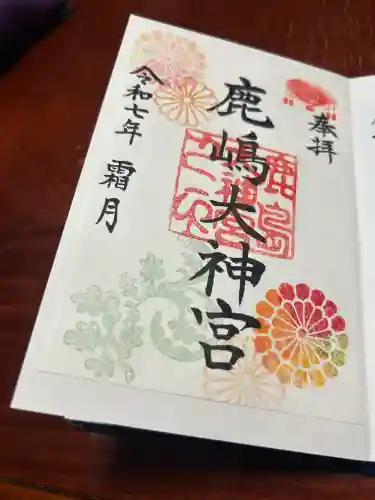 奉拝
鹿嶋大神宮
令和七年 霜月